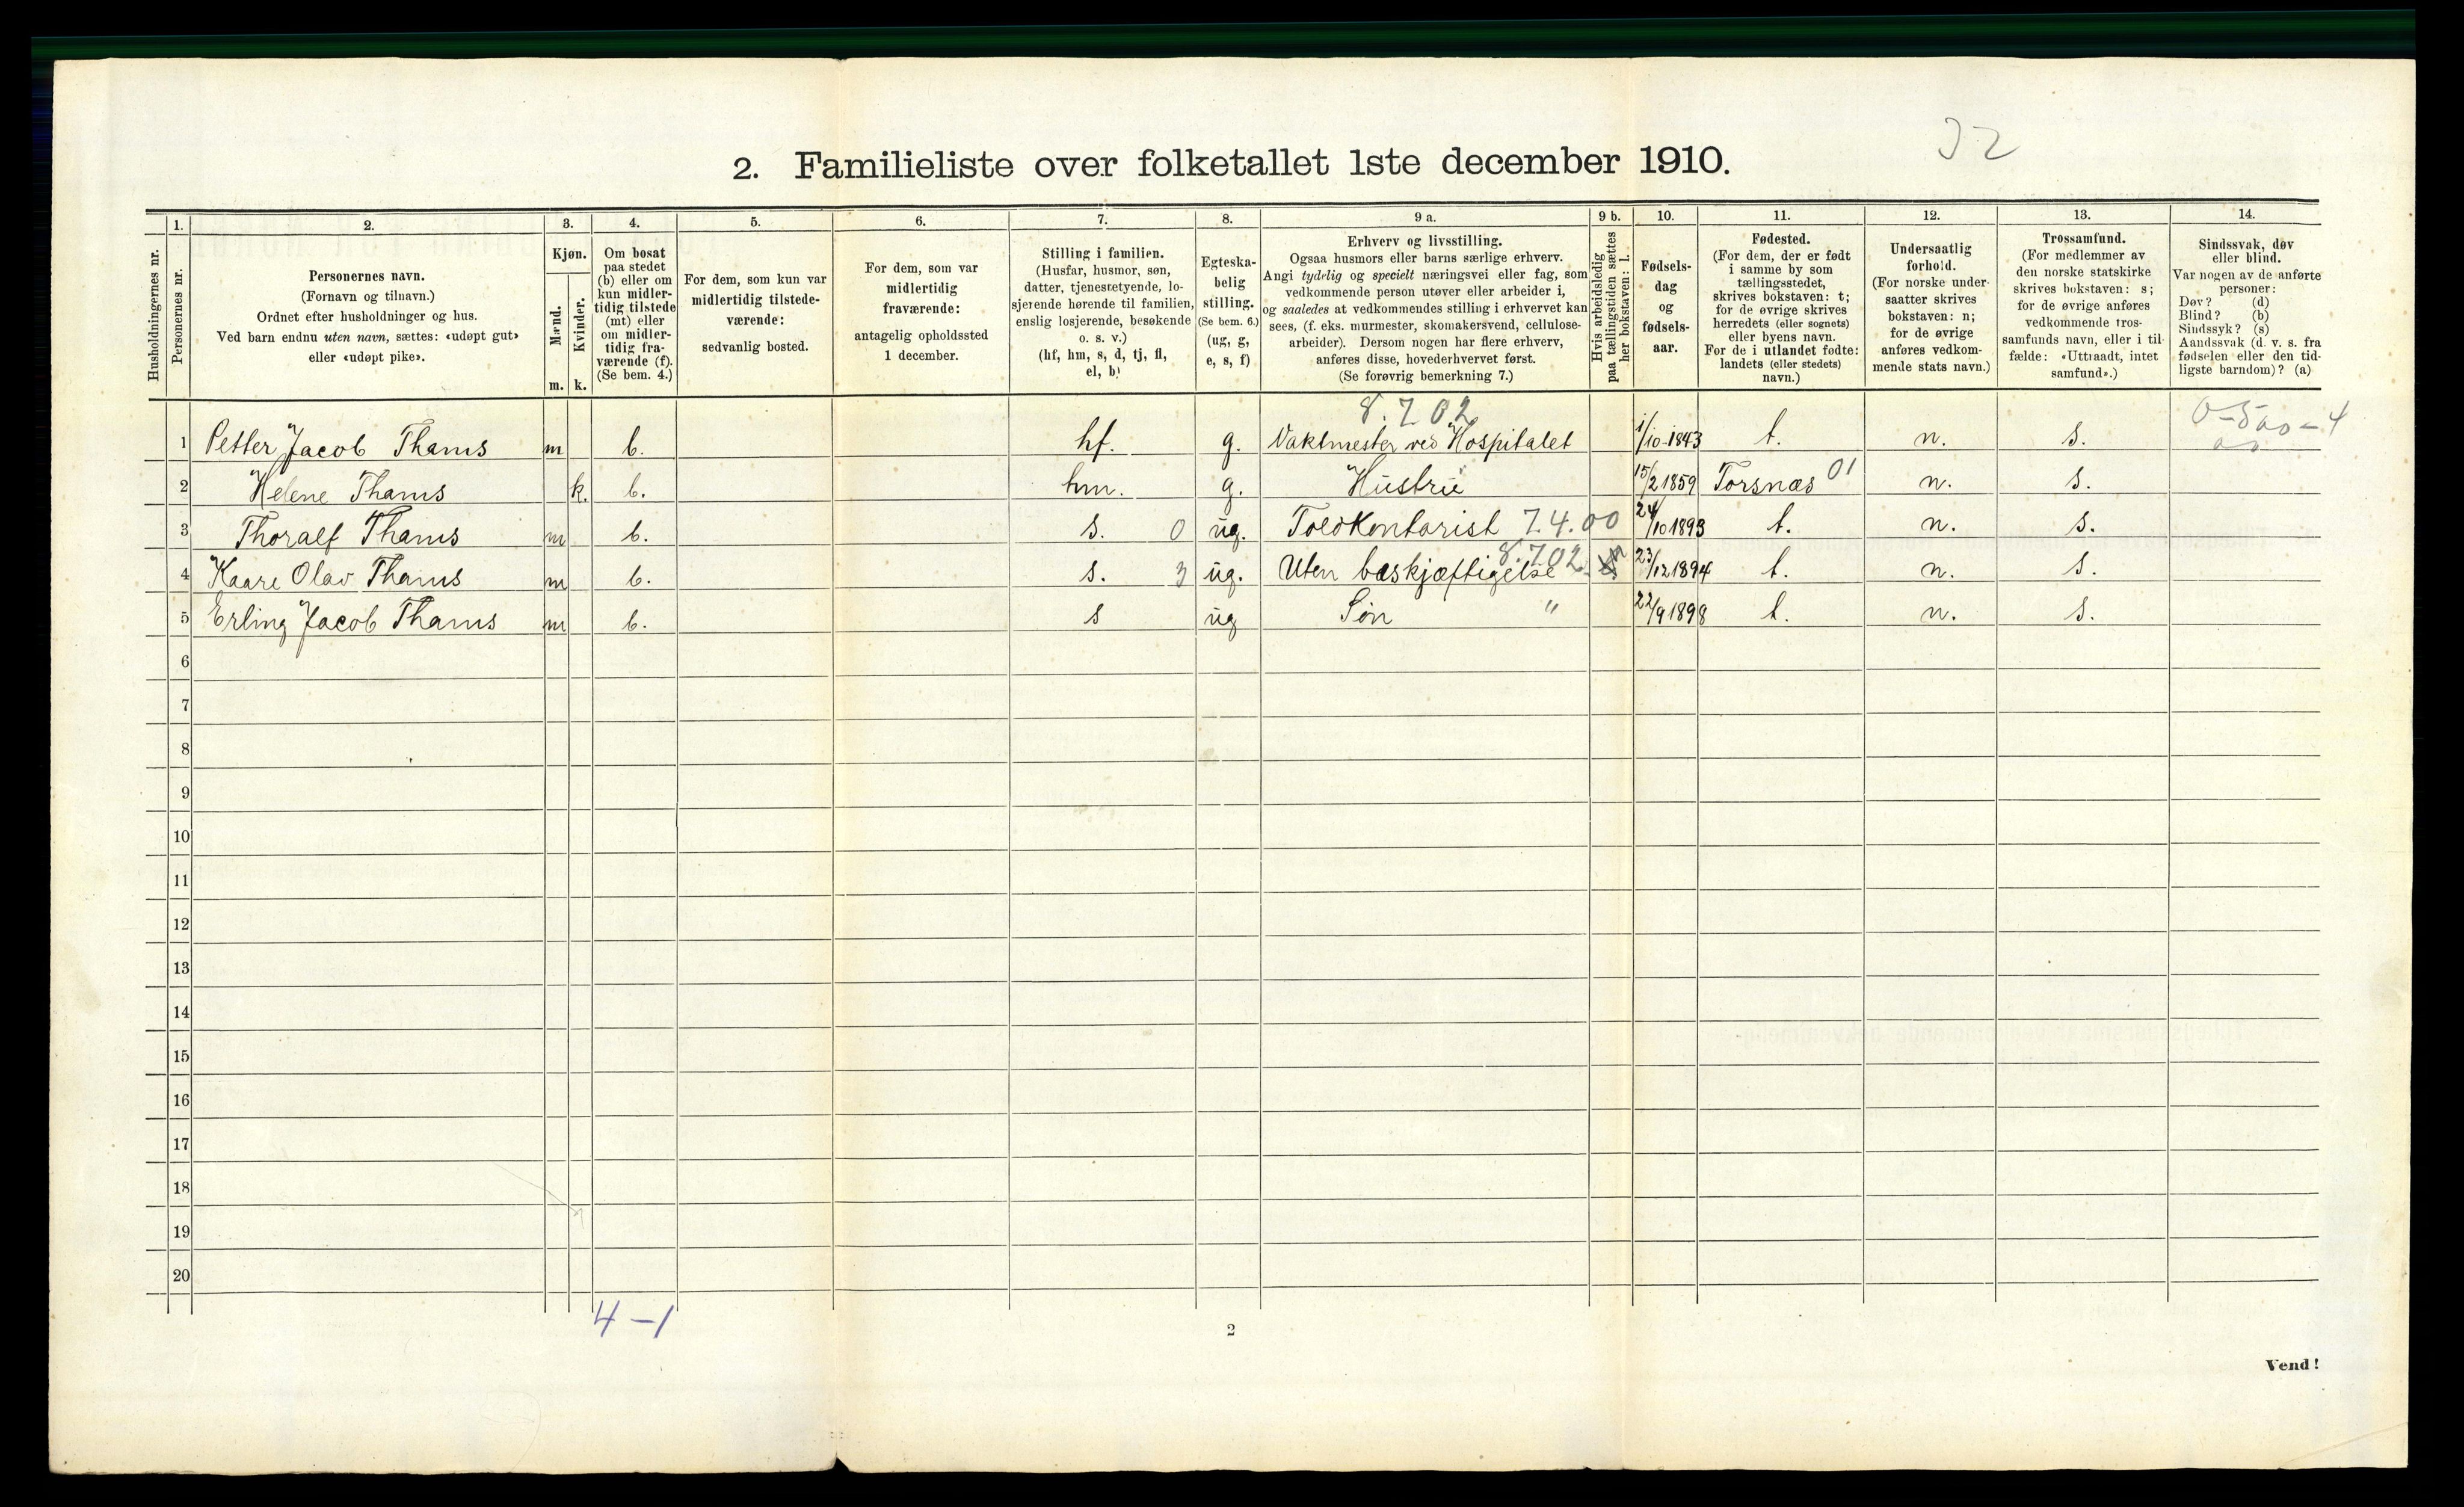 32
2. Familieliste over folketallet 1ste december 1910.
Husholdningernes nr.
1.
Personernes nr.
2.
Personernes navn.
(Fornavn og tilnavn.)
Ordnet efter husholdninger og hus.
Ved barn endnu uten navn, sættes: «udøpt gut»
eller «udøpt pike».
3.
Kjøn.
Mænd.
Kvinder.
m. k.
4.
Om bosat
paa stedet
(b) eller om
kun midler-
tidig tilstede
(mt) eller
om midler-
tidig fra-
værende (f).
(Se bem. 4.)
5.
For dem, som kun var
midlertidig tilstede-
værende:
sedvanlig bosted.
6.
For dem, som var
midlertidig
fraværende:
antagelig opholdssted
1 december.
7.
Stilling i familien.
(Husfar, husmor, søn,
datter, tjenestetyende, lo-
sjerende hørende til familien,
enslig losjerende, besøkende
o. s. v.)
(hf, hm, s, d, tj, fl,
el, b)
8.
Egteska-
belig
stilling.
(Se bem. 6.)
(ug, g,
e, s, f)
9 a.
Erhverv og livsstilling.
Ogsaa husmors eller barns særlige erhverv.
Angi tydelig og specielt næringsvei eller fag, som
vedkommende person utøver eller arbeider i,
og saaledes at vedkommendes stilling i erhvervet kan
sees, (f. eks. murmester, skomakersvend, cellulose-
arbeider). Dersom nogen har flere erhverv,
anføres disse, hovederhvervet først.
(Se forøvrig bemerkning 7.)
9 b.
Hvis arbeidsledig
paa tællingstiden sættes
her bokstaven: l.
10.
Fødsels-
dag
og
fødsels-
aar.
11.
Fødested.
(For dem, der er født
i samme by som
tællingsstedet,
skrives bokstaven: t;
for de øvrige skrives
herredets (eller sognets)
eller byens navn.
For de i utlandet fødte:
landets (eller stedets)
navn.)
12.
Undersaatlig
forhold.
(For norske under-
saatter skrives
bokstaven: n;
for de øvrige
anføres vedkom-
mende stats navn.)
13.
Trossamfund.
(For medlemmer av
den norske statskirke
skrives bokstaven: s;
for de øvrige anføres
vedkommende tros-
samfunds navn, eller i til-
fælde: «Uttraadt, intet
samfund».)
14.
Sindssvak, døv
eller blind.
Var nogen av de anførte
personer:
Døv? (d)
Blind? (b)
Sindssyk? (s)
Aandssvak (d. v. s. fra
fødselen eller den tid-
ligste barndom)? (a)
8.702
1 Petter Jacob Thams m b. hf. g. Vaktmester ved Hospitalet 1/10-1843 t. n. s.
2 Helene Thams k. b. hm. g. Hustru 15/2 1859 Torsnæs 01 n. s.
3 Thoralf Thams m b. s. 0 ug. Toldkontorist 7.4.00 24/10 1893 t. n. s.
8.702
4 Kaare Olav Thams m b. s. 3 ug. Uten beskjæftigelse 23/12 1894 t. n. s.
5 Erling Jacob Thams m b. s ug Søn " 22/9 1898 t. n. s.
6
7
8
9
10
11
12
13
14
15
16
17
18
19
20
4-1
2
Vend!